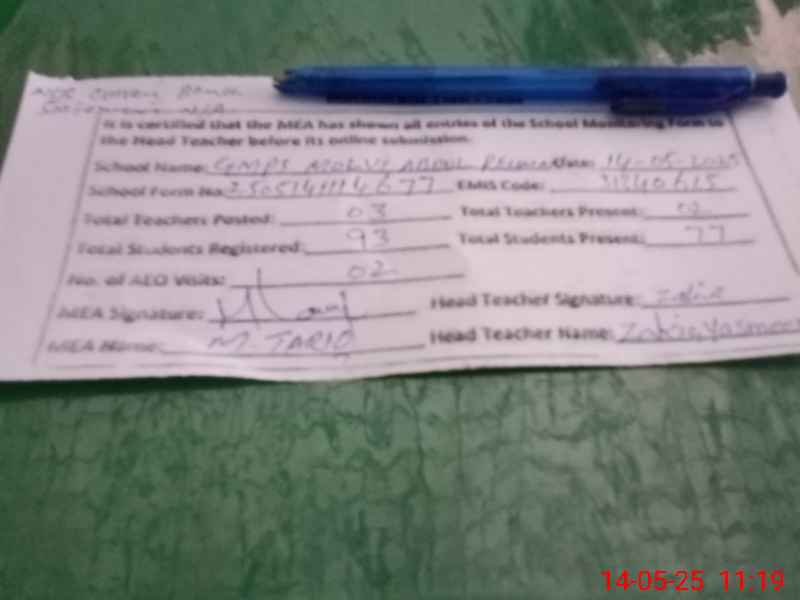 It is certified that the MEA has shown all entries of the School Monitoring Form to
the Head Teacher before its online submission.
School Name: GMPS MOLVI ABDUL Date: 14-05-2025
School Form No: EMIS Code: 31240615
Total Teachers Posted: 03 Total Teachers Present: 02
Total Students Registered: 93 Total Students Present: 77
No. of AEO Visits: 02
MEA Signature: Head Teacher Signature:
MEA Name: M. TARIQ Head Teacher Name: Zahir Yasmeen
14-05-25 11:19